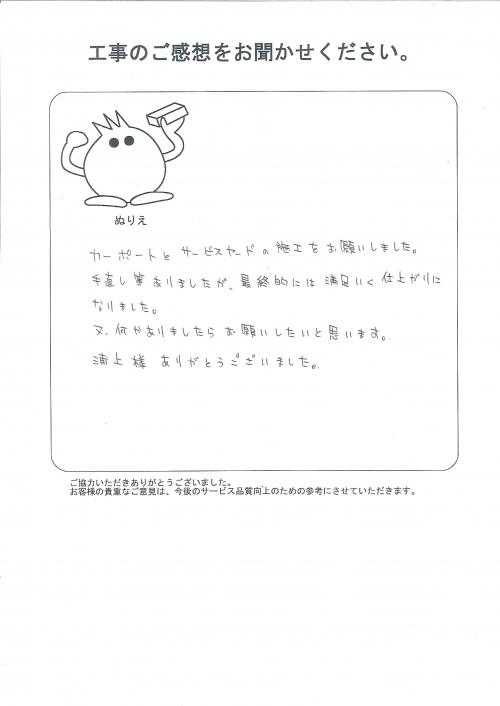 工事のご感想をお聞かせください。
ぬりえ
カーポートと サービスヤードの施工をお願いしました。
手直し等ありましたが、最終的には満足いく仕上がりに
なりました。
又、何かありましたらお願いしたいと思います。
浦上様 ありがとうございました。
ご協力いただきありがとうございました。
お客様の貴重なご意見は、今後のサービス品質向上のための参考にさせていただきます。